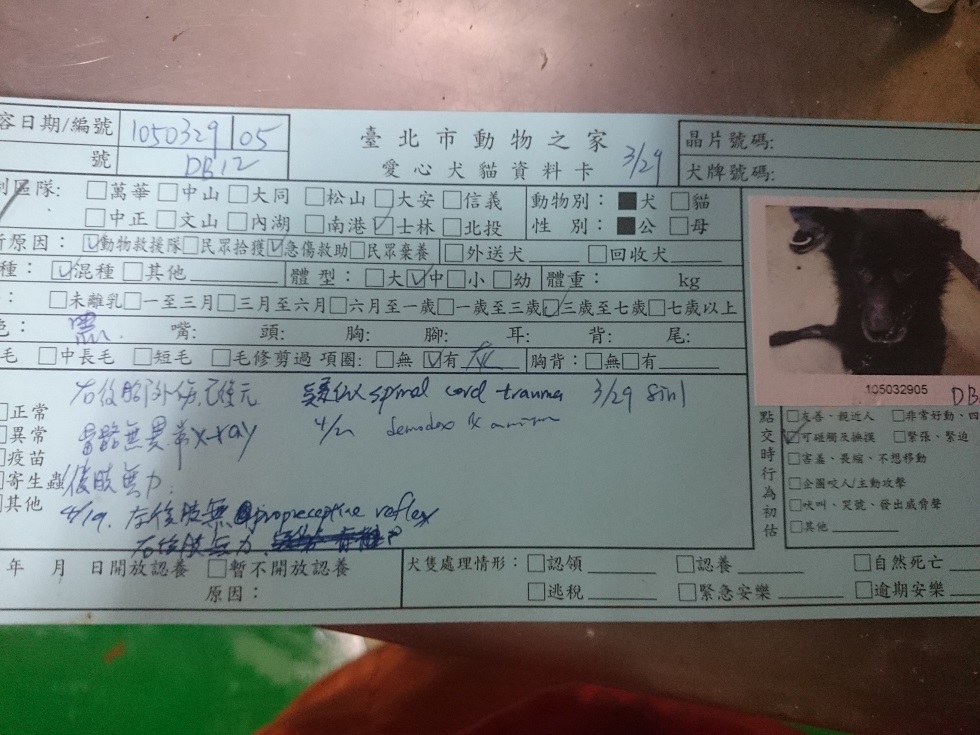 容日期/編號 1050329 05
臺北市動物之家
號 DB12
愛心犬貓資料卡 3/29
晶片號碼:
犬牌號碼:
制區隊: □萬華 □中山 □大同 □松山 □大安 □信義
□中正 □文山 □內湖 □南港 ☑士林 □北投
動物別: ■犬 □貓
性 別: ■公 □母
所原因: ☑動物救援隊 □民眾拾獲 ☑急傷救助 □民眾棄養 □外送犬 □回收犬
種: ☑混種 □其他 體型: □大 ☑中 □小 □幼 體重: kg
: □未離乳 □一至三月 □三月至六月 □六月至一歲 □一歲至三歲 ☑三歲至七歲 □七歲以上
色: 黑 嘴: 頭: 胸: 腳: 耳: 背: 尾:
毛 □中長毛 □短毛 □毛修剪過 項圈: □無 ☑有 紅 胸背: □無 □有
105032905
DB
□正常
□異常
□疫苗
□寄生蟲
□其他
右後腳外傷,已復元 疑似 spinal cord trauma 3/29 8in1
骨骼無異常 X-ray 4/2 demodex
後肢無力.
4/19. 左後肢無 propreceptive reflex
右後肢無力
點交時行為初估
□友善、親近人 □非常好動、四
☑可碰觸及撫摸 □緊張、緊迫
□害羞、畏縮、不想移動
□企圖咬人/主動攻擊
□吠叫、哭號、發出威脅聲
□其他
年 月 日開放認養 □暫不開放認養
原因:
犬隻處理情形: □認領 □認養 □自然死亡
□逃稅 □緊急安樂 □逾期安樂